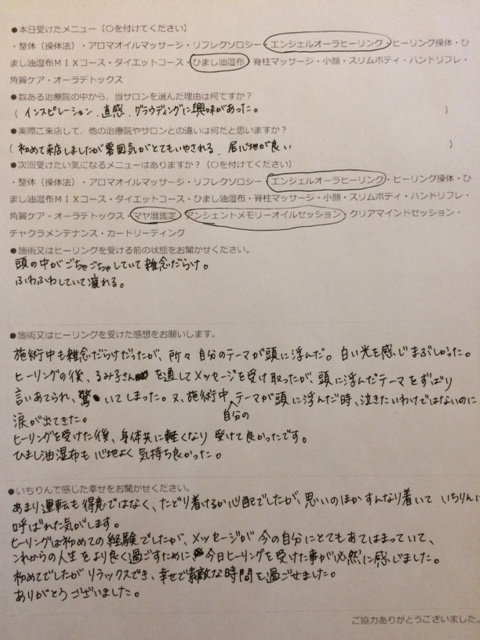 ●本日受けたメニュー（○を付けてください）
・整体（操体法）・アロマオイルマッサージ・リフレクソロジー・エンジェルオーラヒーリング・ヒーリング操体・ひ
まし油湿布ＭＩＸコース・ダイエットコース・ひまし油湿布・脊柱マッサージ・小顔・スリムボディ・ハンドリフレ・
角質ケア・オーラデトックス
●数ある治療院の中から、当サロンを選んだ理由は何ですか？
（ インスピレーション、直感、グラウディングに興味があった。 ）
●実際ご来店して、他の治療院やサロンとの違いは何だと思いますか？
（ 初めて来店しましたが雰囲気がとてもいやされる。居心地が良い ）
●次回受けたい気になるメニューはありますか？（○を付けてください）
・整体（操体法）・アロマオイルマッサージ・リフレクソロジー・エンジェルオーラヒーリング・ヒーリング操体・ひ
まし油湿布ＭＩＸコース・ダイエットコース・ひまし油湿布・脊柱マッサージ・小顔・スリムボディ・ハンドリフレ・
角質ケア・オーラデトックス・マヤ暦鑑定・アンシェントメモリーオイルセッション・クリアマインドセッション・
チャクラメンテナンス・カードリーディング
●施術又はヒーリングを受ける前の状態をお聞かせください。
頭の中がごちゃごちゃしていて雑念だらけ。
ふわふわしていて疲れる。
●施術又はヒーリングを受けた感想をお願いします。
施術中も雑念だらけだったが、所々自分のテーマが頭に浮んだ。白い光を感じまぶしかった。
ヒーリングの後、るみ子さんを通してメッセージを受け取ったが、頭に浮んだテーマをずばり
言いあてられ、驚いてしまった。又、施術中自分のテーマが頭に浮んだ時、泣きたいわけではないのに
涙が出てきた。
ヒーリングを受けた後、身体共に軽くなり受けて良かったです。
ひまし油湿布も心地よく気持ち良かった。
●いちりんで感じた幸せをお聞かせください。
あまり運転も得意ではなく、たどり着けるか心配でしたが、思いのほかすんなり着いていちりんに
呼ばれた気がします。
ヒーリングは初めての経験でしたが、メッセージが今の自分にとてもあてはまっていて、
これからの人生をより良く過ごすために今日ヒーリングを受けた事が必然に感じました。
初めてでしたがリラックスでき、幸せで素敵な時間を過ごせました。
ありがとうございました。
ご協力ありがとうございました。